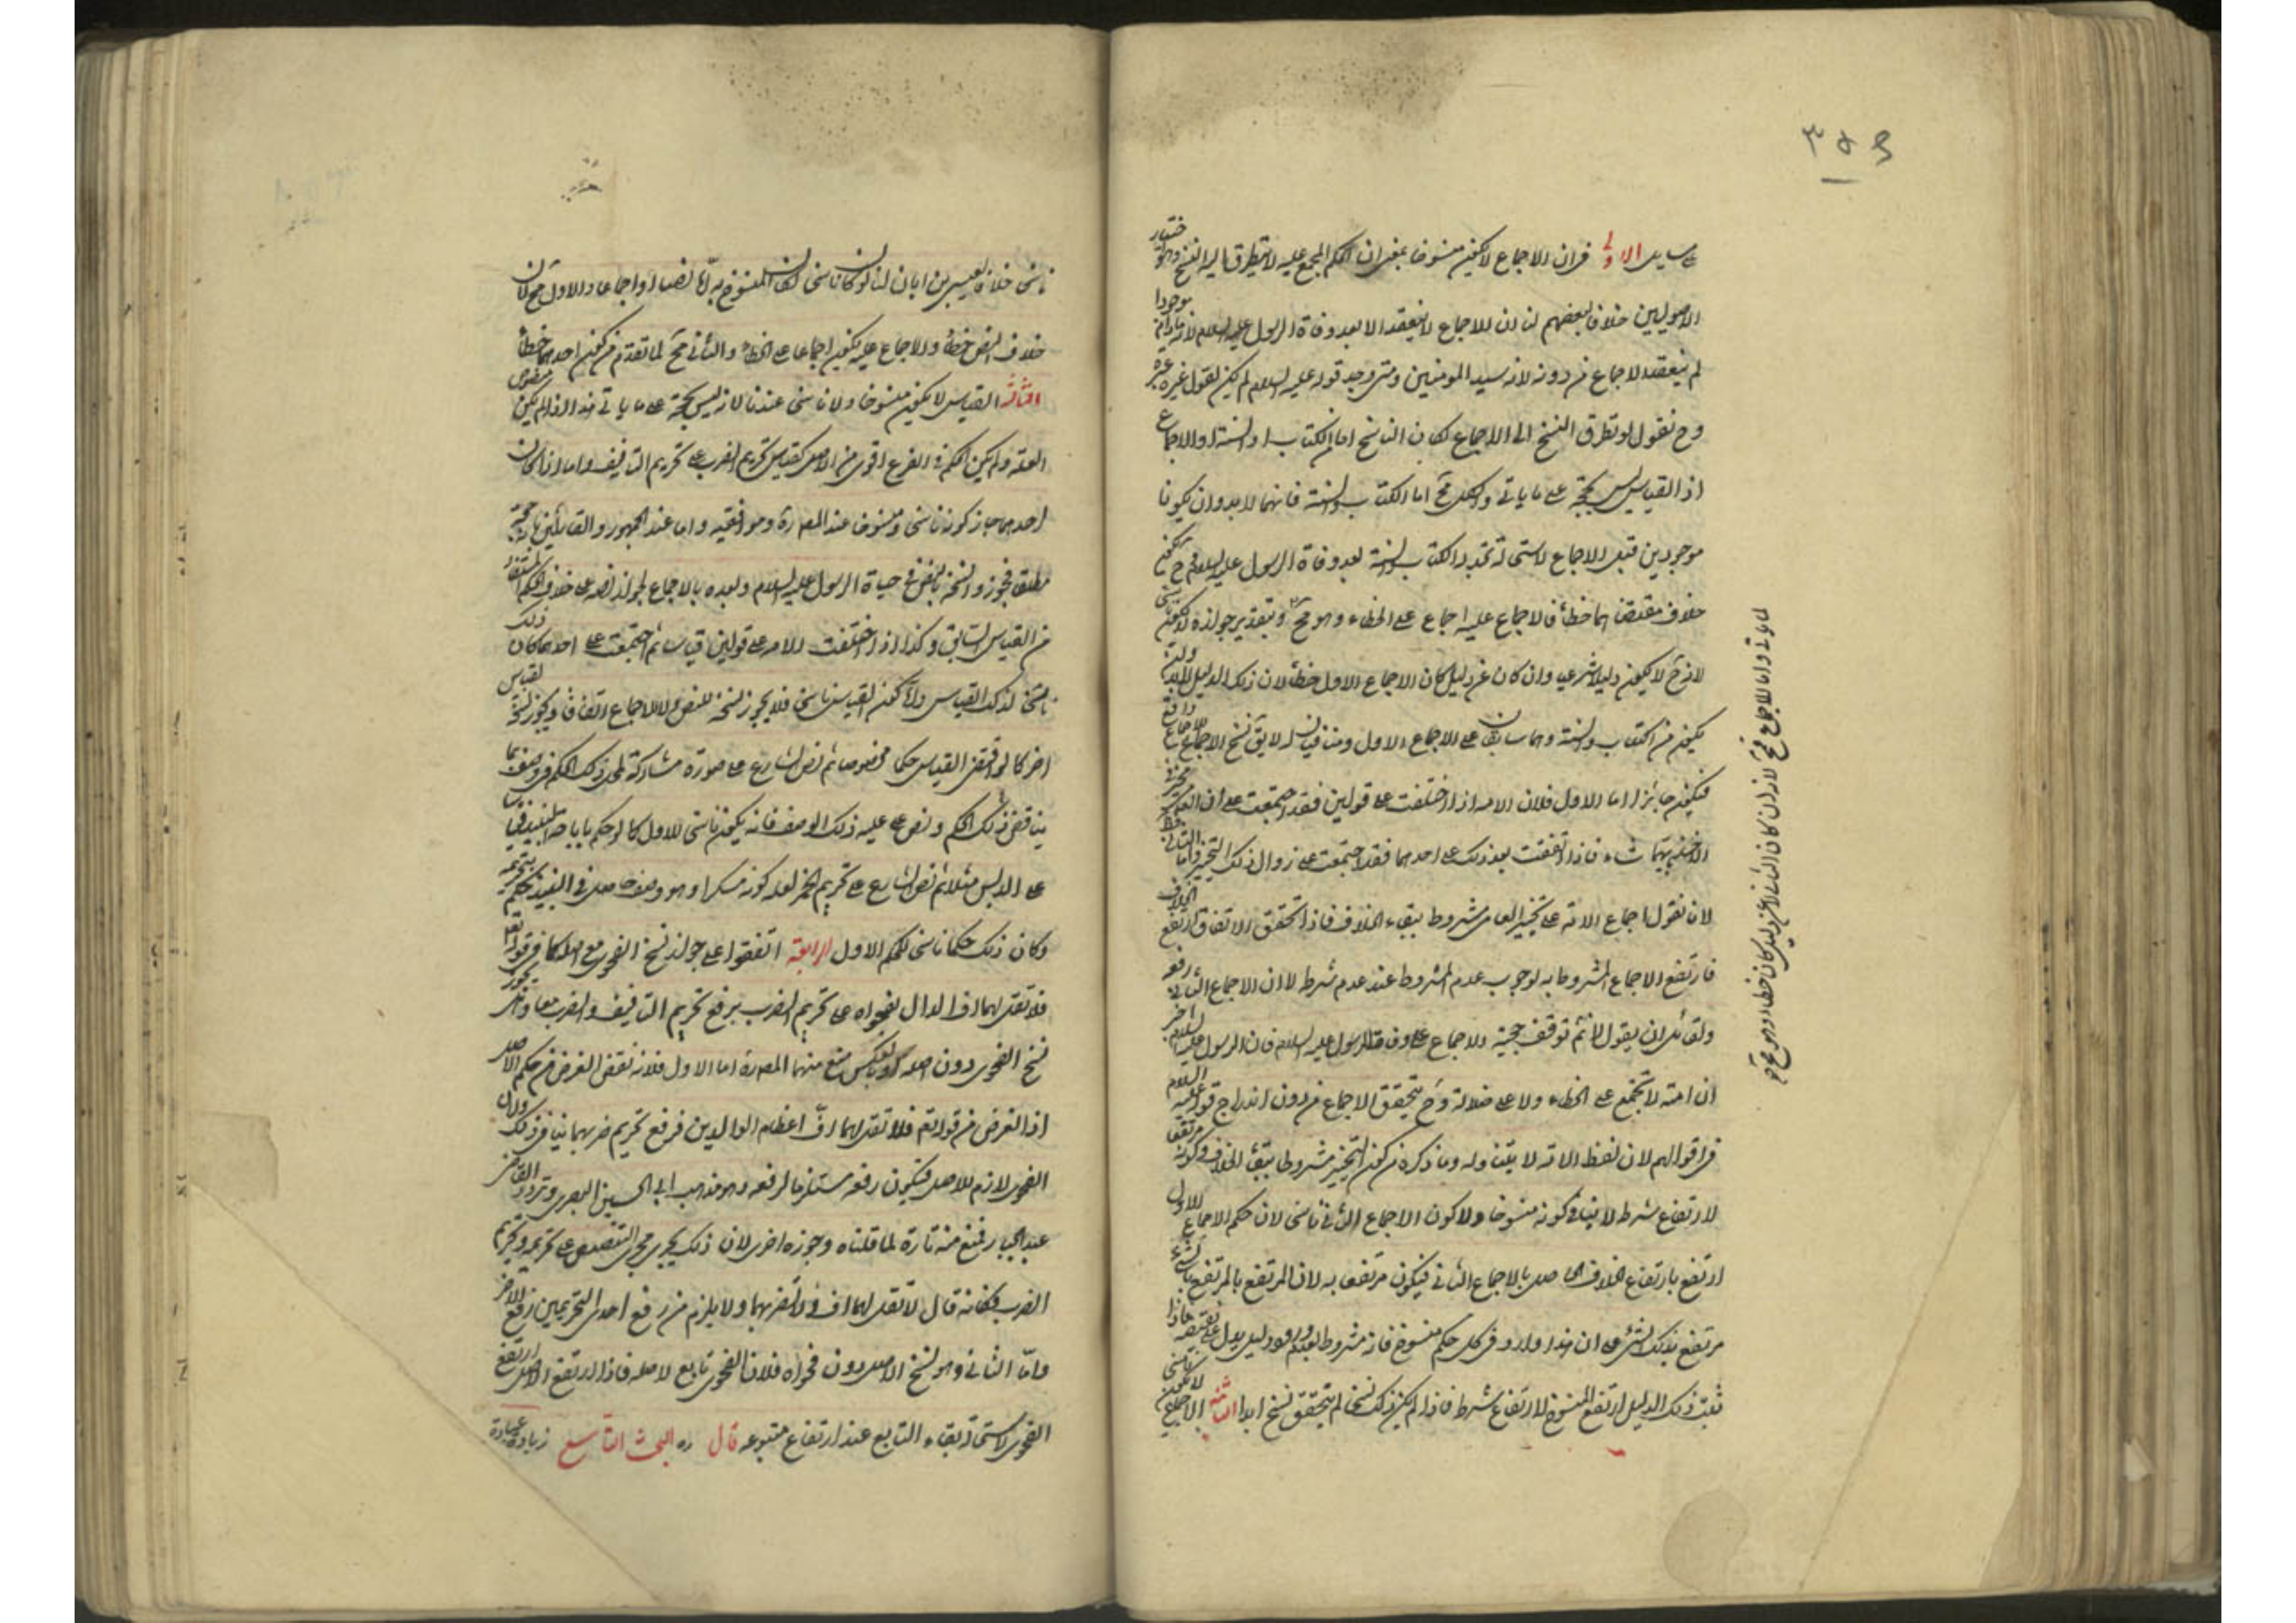 مسايل الاولى في ان الاجماع لا يكون منسوخا بمعنى ان الحكم المجمع عليه لا يتطرق اليه النسخ وهو اختيار
الاصوليين خلافا لبعضهم لنا ان الاجماع لا ينعقد الا بعد وفاة الرسول عليه السلام لانه ما دام موجودا
لم ينعقد الاجماع من دونه لانه سيد المومنين ومتى وجد قوله عليه السلام لم يكن لقول غيره عبرة
وح نقول لو تطرق النسخ الى الاجماع لكان الناسخ اما الكتاب او السنة او الاجماع
اذ القياس ليس بحجة على ما ياتي والكل مح اما الكتاب والسنة فانهما لا بد وان يكونا
موجودين قبل الاجماع لاستحالة تجدد الكتاب والسنة بعد وفاة الرسول عليه السلام فح يكون
خلاف مقتضاهما خطأ فالاجماع عليه اجماع على الخطاء وهو مح وبتقدير جوازه لا يكون
لانه ح لا يكون دليلا شرعيا وان كان عن دليل كان الاجماع الاول خطأ لان ذلك الدليل لا بد
يكون من الكتاب والسنة وهما سابقان على الاجماع الاول ومنافيان له لا يق نسخ الاجماع بالاجماع واقع
فيكون جائزا اما الاول فلان الامة اذا اختلفت على قولين فقد اجتمعت على ان العامي مخير في
الاخذ بايهما شاء فاذا اتفقت بعد ذلك على احدهما فقد اجتمعت على زوال ذلك التخيير واما الثاني فظ
لان نقول اجماع الامة على تخيير العامي مشروط ببقاء الخلاف فاذا تحقق الاتفاق ارتفع الخلاف
فارتفع الاجماع المشروط به لوجوب عدم المشروط عند عدم شرطه لا ان الاجماع الثاني رفعه
ولقائل ان يقول لا نم توقف حجية الاجماع على وفاة الرسول عليه السلام فان الرسول عليه السلام اخبر
ان امته لا تجتمع على الخطاء ولا على ضلالة وح يتحقق الاجماع من دون اندراج قوله عليه السلام
في اقوالهم لان لفظ الامة لا يتناوله وما ذكره من كون التخيير مشروطا ببقاء الخلاف وكونه مرتفعا
لارتفاع شرطه لا ينافي كونه منسوخا ولا كون الاجماع الثاني ناسخا لان حكم الاجماع الاول
ارتفع بارتفاع الخلاف الحاصل بالاجماع الثاني فيكون مرتفعا به لان المرتفع بالمرتفع بالشيء
مرتفع بذلك الشيء على ان هذا وارد في كل حكم منسوخ فانه مشروط بعدم ورود دليل يدل على نقيضه فاذا
ثبت ذلك الدليل ارتفع المنسوخ لارتفاع شرطه فاذا لم يكن ذلك نسخا لم يتحقق نسخ ابدا الثانية الاجماع لا يكون ناسخا
ناسخا خلافا لعيسى بن ابان لنا لو كان ناسخا لكان المنسوخ به اما نصا او اجماعا والاول مح لان
خلاف النص خطأ والاجماع عليه يكون اجماعا على الخطاء والثاني مح لما تقدم من كون احدهما خطأ
الثالثة القياس لا يكون منسوخا ولا ناسخا عندنا لانه ليس بحجة على ما ياتي هذا اذا لم يكن منصوص
العلة ولم يكن الحكم في الفرع اقوى من الاصل كقياس تحريم الضرب على تحريم التافيف واما اذا كان
احدهما جاز كونه ناسخا ومنسوخا عند المص ره وموافقيه واما عند الجمهور والقائلين بانه حجة
مطلقا فجوزوا نسخه بالنص في حياة الرسول عليه السلام وبعده بالاجماع لجواز نصه على خلاف الحكم المستفاد
من القياس السابق وكذا اذا اختلفت الامة على قولين قياسا ثم اجتمعت على احدهما كان ذلك
ناسخا لذلك القياس واما كون القياس ناسخا فلا يجوز نسخه للنص ولا للاجماع اتفاقا ويجوز نسخه لقياس
اخر كما لو اقتضى القياس حكما مخصوصا ثم نص الشارع على صورة مشاركة لمحل ذلك الحكم في وصف بما
يناقض ذلك الحكم ونص على علية ذلك الوصف فانه يكون ناسخا للاول كما لو حكم باباحة النبيذ قياسا
على الدبس مثلا ثم نص الشارع على تحريم الخمر لعلة كونه مسكرا وهو وصف حاصل في النبيذ فيحكم بتحريمه
وكان ذلك حكما ناسخا للحكم الاول الرابعة اتفقوا على جواز نسخ الفحوى مع اصله كما في قوله تعالى
فلا تقل لهما اف الدال بفحواه على تحريم الضرب برفع تحريم التافيف والضرب معا وهل يجوز
نسخ الفحوى دون اصله وبالعكس منع منهما المص ره اما الاول فلانه نقض الغرض من حكم الاصل
اذ الغرض من قوله تعالى فلا تقل لهما اف اعظام الوالدين فرفع تحريم ضربهما ينافي ذلك ولان
الفحوى لازم للاصل فيكون رفعه مستلزما لرفعه وهو مذهب ابي الحسين البصري وتردد القاضي
عبد الجبار فمنع منه تارة لما قلناه وجوزه اخرى لان ذلك يجري مجرى التنصيص على تحريمه وتحريم
الضرب فكانه قال لا تقل لهما اف ولا تضربهما ولا يلزم من رفع احد التحريمين رفع الاخر
واما الثاني وهو نسخ الاصل دون فحواه فلان الفحوى تابع لاصله فاذا ارتفع الاصل ارتفع
الفحوى لاستحالة بقاء التابع عند ارتفاع متبوعه قال ره البحث التاسع زيادة عبادة